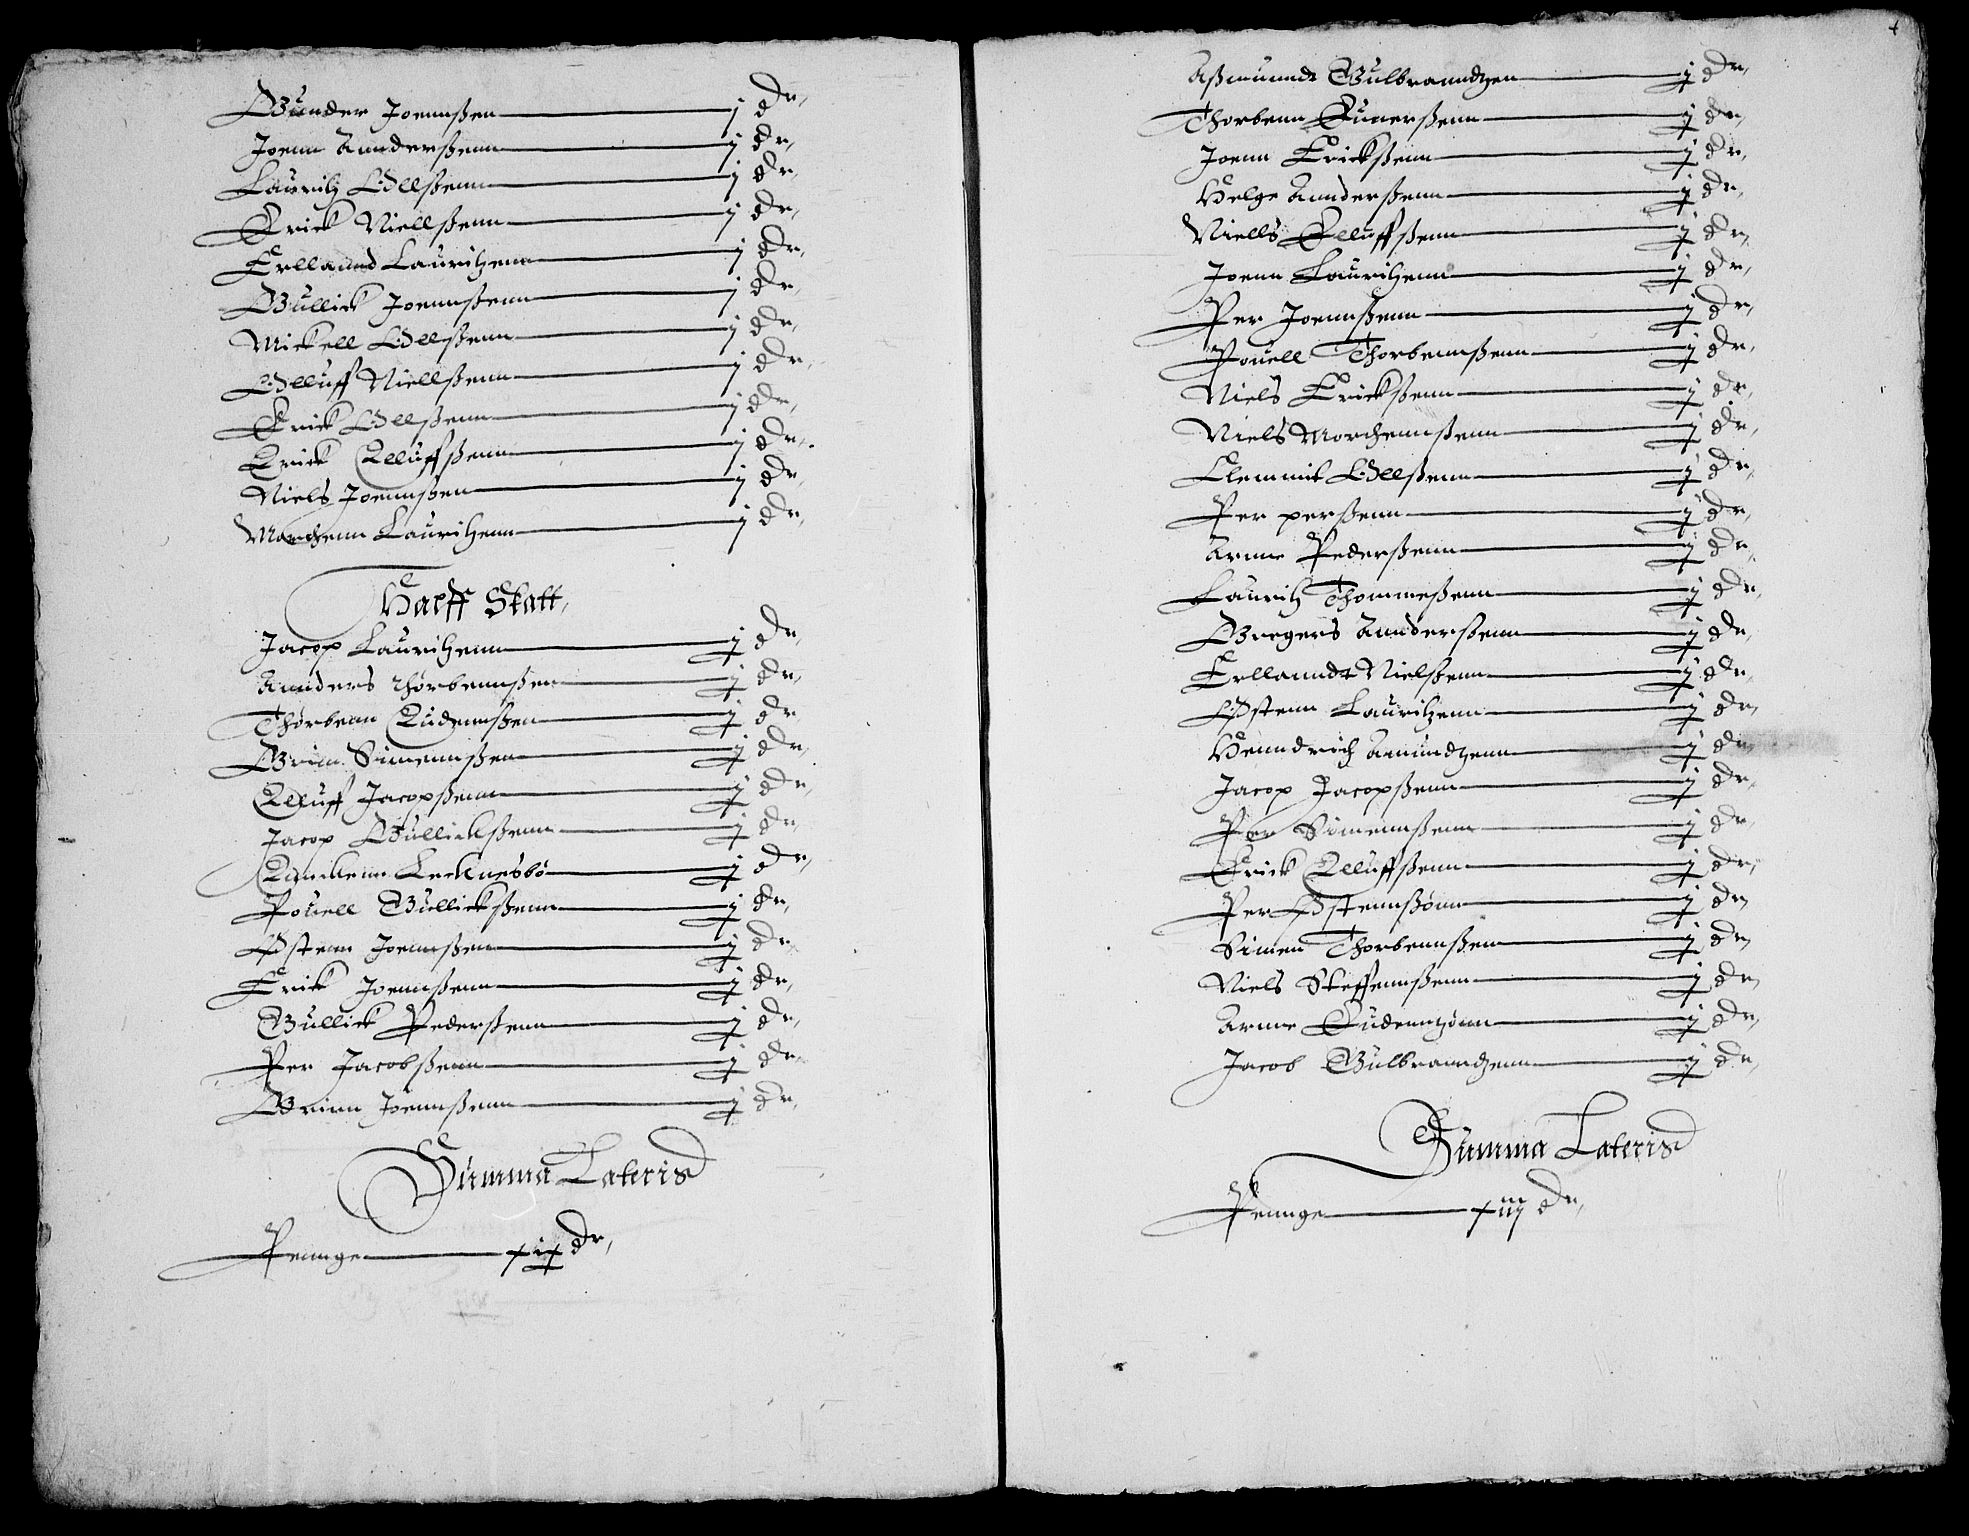 Gunder Joennßen j dr,
Joenn Annderßenn j dr,
Lauritz Ollßenn j dr,
Erick Niellßenn j dr,
Erllannd Lauritzenn j dr,
Gullick Joennßenn j dr,
Mickell Ollßenn j dr,
Olluff Niellßenn j dr,
Erick Ollßenn j dr,
Erick Elluffßenn j dr,
Niels Joennßenn j dr,
Morthenn Lauritzenn j dr,
Halff Skatt,
Jacop Lauritzenn j dr,
Annders Thorbennßen j dr,
Thorbenn Eudennßen j dr,
Grim Simennßen j dr,
Elluff Jacopßenn j dr,
Jacop Gullickßenn j dr,
j dr,
Pouell Gullickßenn j dr,
Østenn Joennßen j dr,
Erick Joennßenn j dr,
Gullick Pederßenn j dr,
Per Jacobßenn j dr,
Joennßenn j dr,
Summa Lateris
Pennge xix dr,
4
Aßmunndt Gulbranndtzen j dr,
Thorbenn j dr,
Joenn Erickßenn j dr,
Helge Annderßenn j dr,
Niells Elluffßenn j dr,
Joenn Lauritzenn j dr,
Per Joennßenn j dr,
Pouell Thorbennßenn j dr,
Niels Erickßenn j dr,
Niels Morthennßenn j dr,
Clemmit Ollßenn j dr,
Per perßenn j dr,
Arnne Pederßenn j dr,
Lauritz Thommeßenn j dr,
Gregers Annderßenn j dr,
Erllanndt Nielßenn j dr,
Østenn Lauritzenn j dr,
Henndrich Amundtzenn j dr,
Jacop Jacopßenn j dr,
Per Simennßenn j dr,
Erick Elluffßenn j dr,
Per Østennßønn j dr,
Simen Thorbennßenn j dr,
Niels Steffennßenn j dr,
Arnne j dr,
Jacob Gulbranndtzenn j dr,
Summa Lateris
Pennge xiij dr,